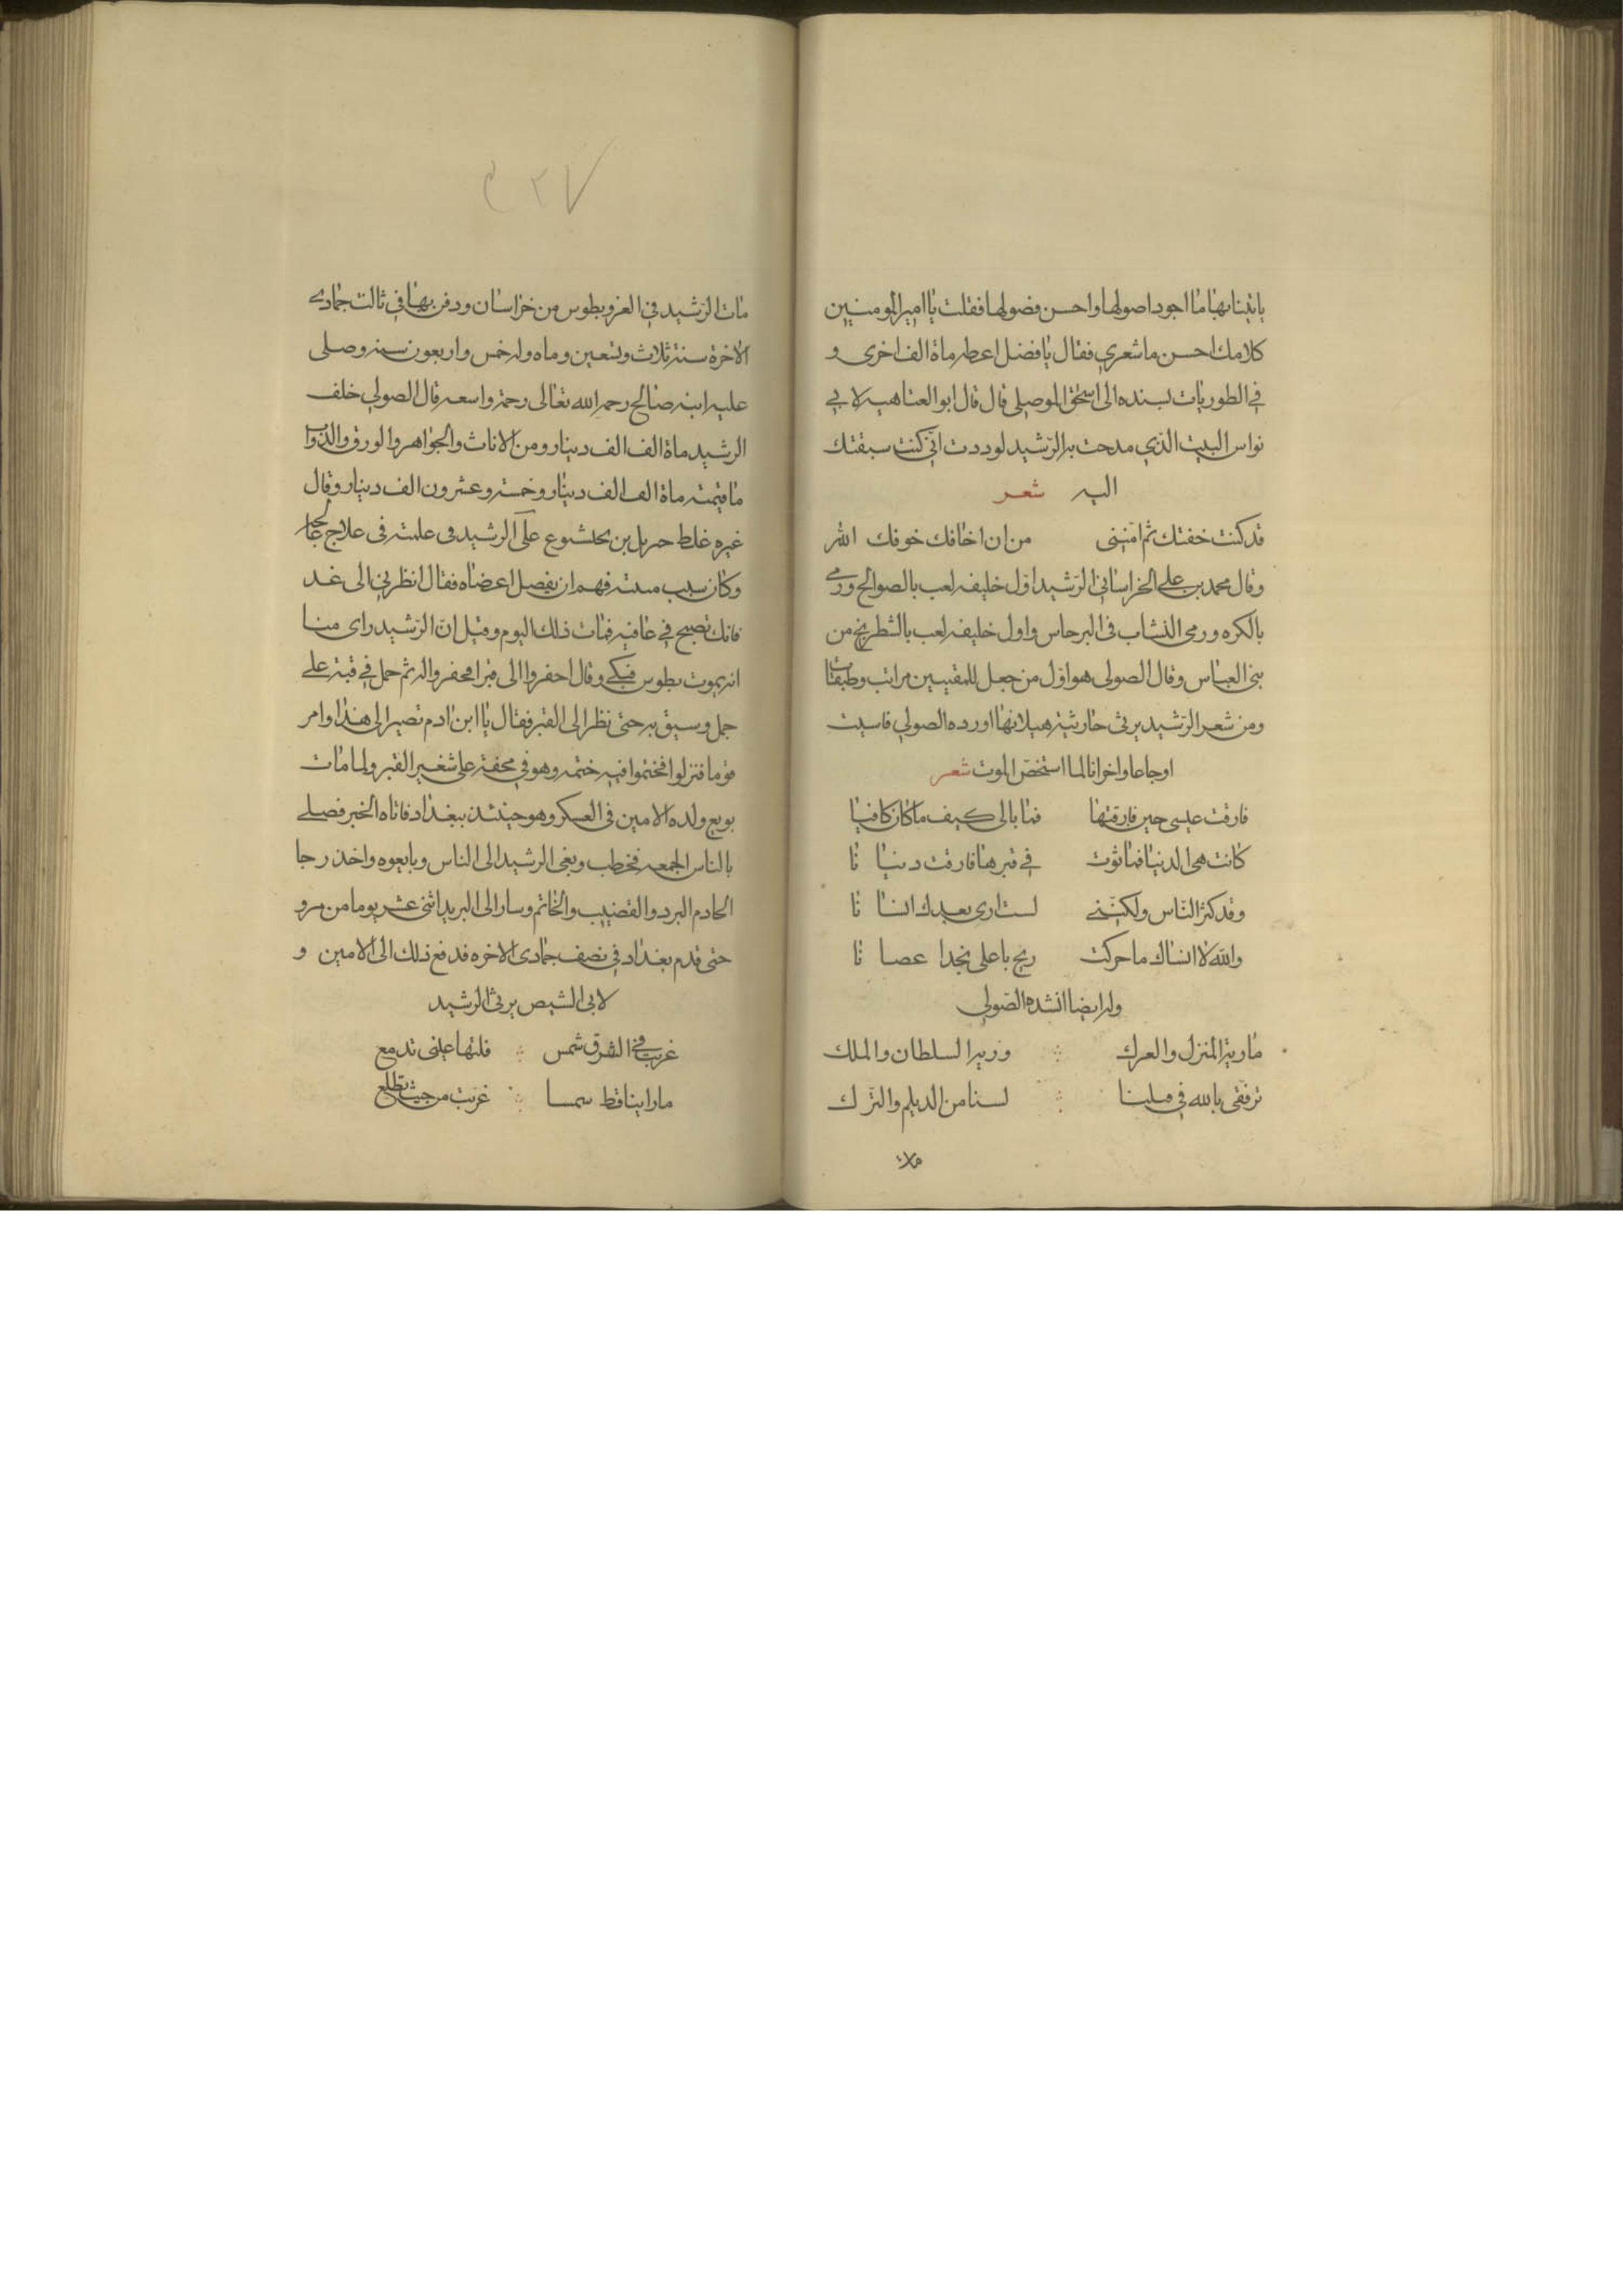 ياتينا بها ما اجود اصولها واحسن فصولها فقلت يا امير المومنين
كلامك احسن ما شعري فقال يا فضل اعطه ماة الف اخرى و
في الطوريات بسنده الى اسحق الموصلي قال قال ابو العتاهيه لابي
نواس البيت الذي مدحت به الرشيد لوددت اني كنت سبقتك
اليه شعر
قد كنت خفتك ثم امنني من ان اخافك خوفك الله
وقال محمد بن علي الخراساني الرشيد اول خليفه لعب بالصوالج ورمى
بالكره ورمى النشاب في البرجاس واول خليفه لعب بالشطرنج من
بني العباس وقال الصولي هو اول من جعل للمقيبين مراتب وطبقات
ومن شعر الرشيد يرثى جاريته هيلانها اورده الصولي قاسيت
اوجاعا واخرانا لما استخص الموت شعر
فارقت عيسى حين فارقتها فما بالى كيف ما كان كافيا
كانت هي الدنيا فما ثوت في قبرها فارقت دنيا نا
وقد كثر الناس ولكنني لست ارى بعدك انسا نا
والله لا انساك ما حركت ريح باعلى نجدا عصا نا
وله ايضا انشده الصولي
ما ربة المنزل والعرك وربه السلطان والملك
ترفقى بالله في ملنا لسنا من الديلم والترك
٢٧م
مات الرشيد في الغزو بطوس من خراسان ودفن بها في ثالث جمادى
الاخرة سنة ثلاث وتسعين وماه وله خمس واربعون سنه وصلى
عليه ابنه صالح رحمه الله تعالى رحمة واسعه قال الصولي خلف
الرشيد ماة الف الف دينار ومن الاثاث والجواهر والورق والدواب
ما قيمته ماة الف الف دينار وخمسة وعشرون الف دينار وقال
غيره غلط حبريل بن بختشوع على الرشيد في علته في علاج عالجه
وكان سبب منيته فهم ان يفصل اعضاه فقال انظرني الى غد
فانك تصبح في عافيه فمات ذلك اليوم وقيل ان الرشيد راى منا
انه يموت بطوس فبكى وقال احفروا الى قبرا فحفروا له ثم حمل في قبة على
جمل وسيق به حتى نظر الى القبر فقال يا ابن ادم تصير الى هذا وامر
قوما فنزلوا فختموا فيه ختمه وهو في محفة على شغير القبر ولما مات
بويع ولده الامين في العسكر وهو حينئذ ببغداد فاتاه الخبر فصلى
بالناس الجمعه فخطب ونعى الرشيد الى الناس وبايعوه واخذ رجا
الخادم البرد والقضيب والخاتم وسار الى البريد اثنى عشر يوما من مرو
حتى قدم بغداد في نصف جمادى الاخره فدفع ذلك الى الامين و
لابى الشيص يرثى الرشيد
غربت في الشرق شمس فلها عيني تدمع
ما راينا قط شمسا غربت من حيث تطلع